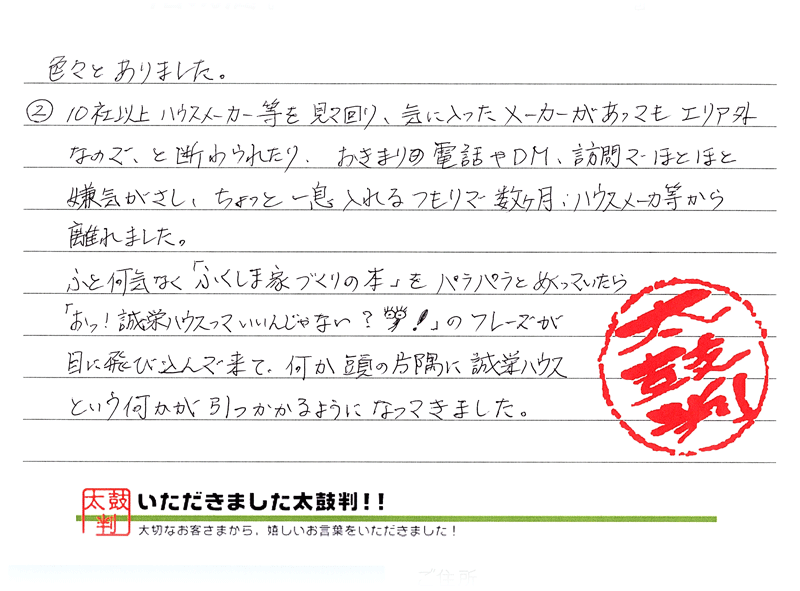 色々とありました。
② 10社以上 ハウスメーカー等を見て回り、気に入ったメーカーがあってもエリア外
なので、と断わられたり、おきまりの電話やDM、訪問でほとほと
嫌気がさし、ちょっと一息入れるつもりで数ヶ月、ハウスメーカ等から
離れました。
ふと何気なく「ふくしま家づくりの本」をパラパラとめくっていたら
「おっ!誠栄ハウスっていいんじゃない?!」のフレーズが
目に飛び込んで来て、何か頭の片隅に誠栄ハウス
という何かが引っかかるようになってきました。
太鼓判
太鼓判 いただきました太鼓判!!
大切なお客さまから、嬉しいお言葉をいただきました!